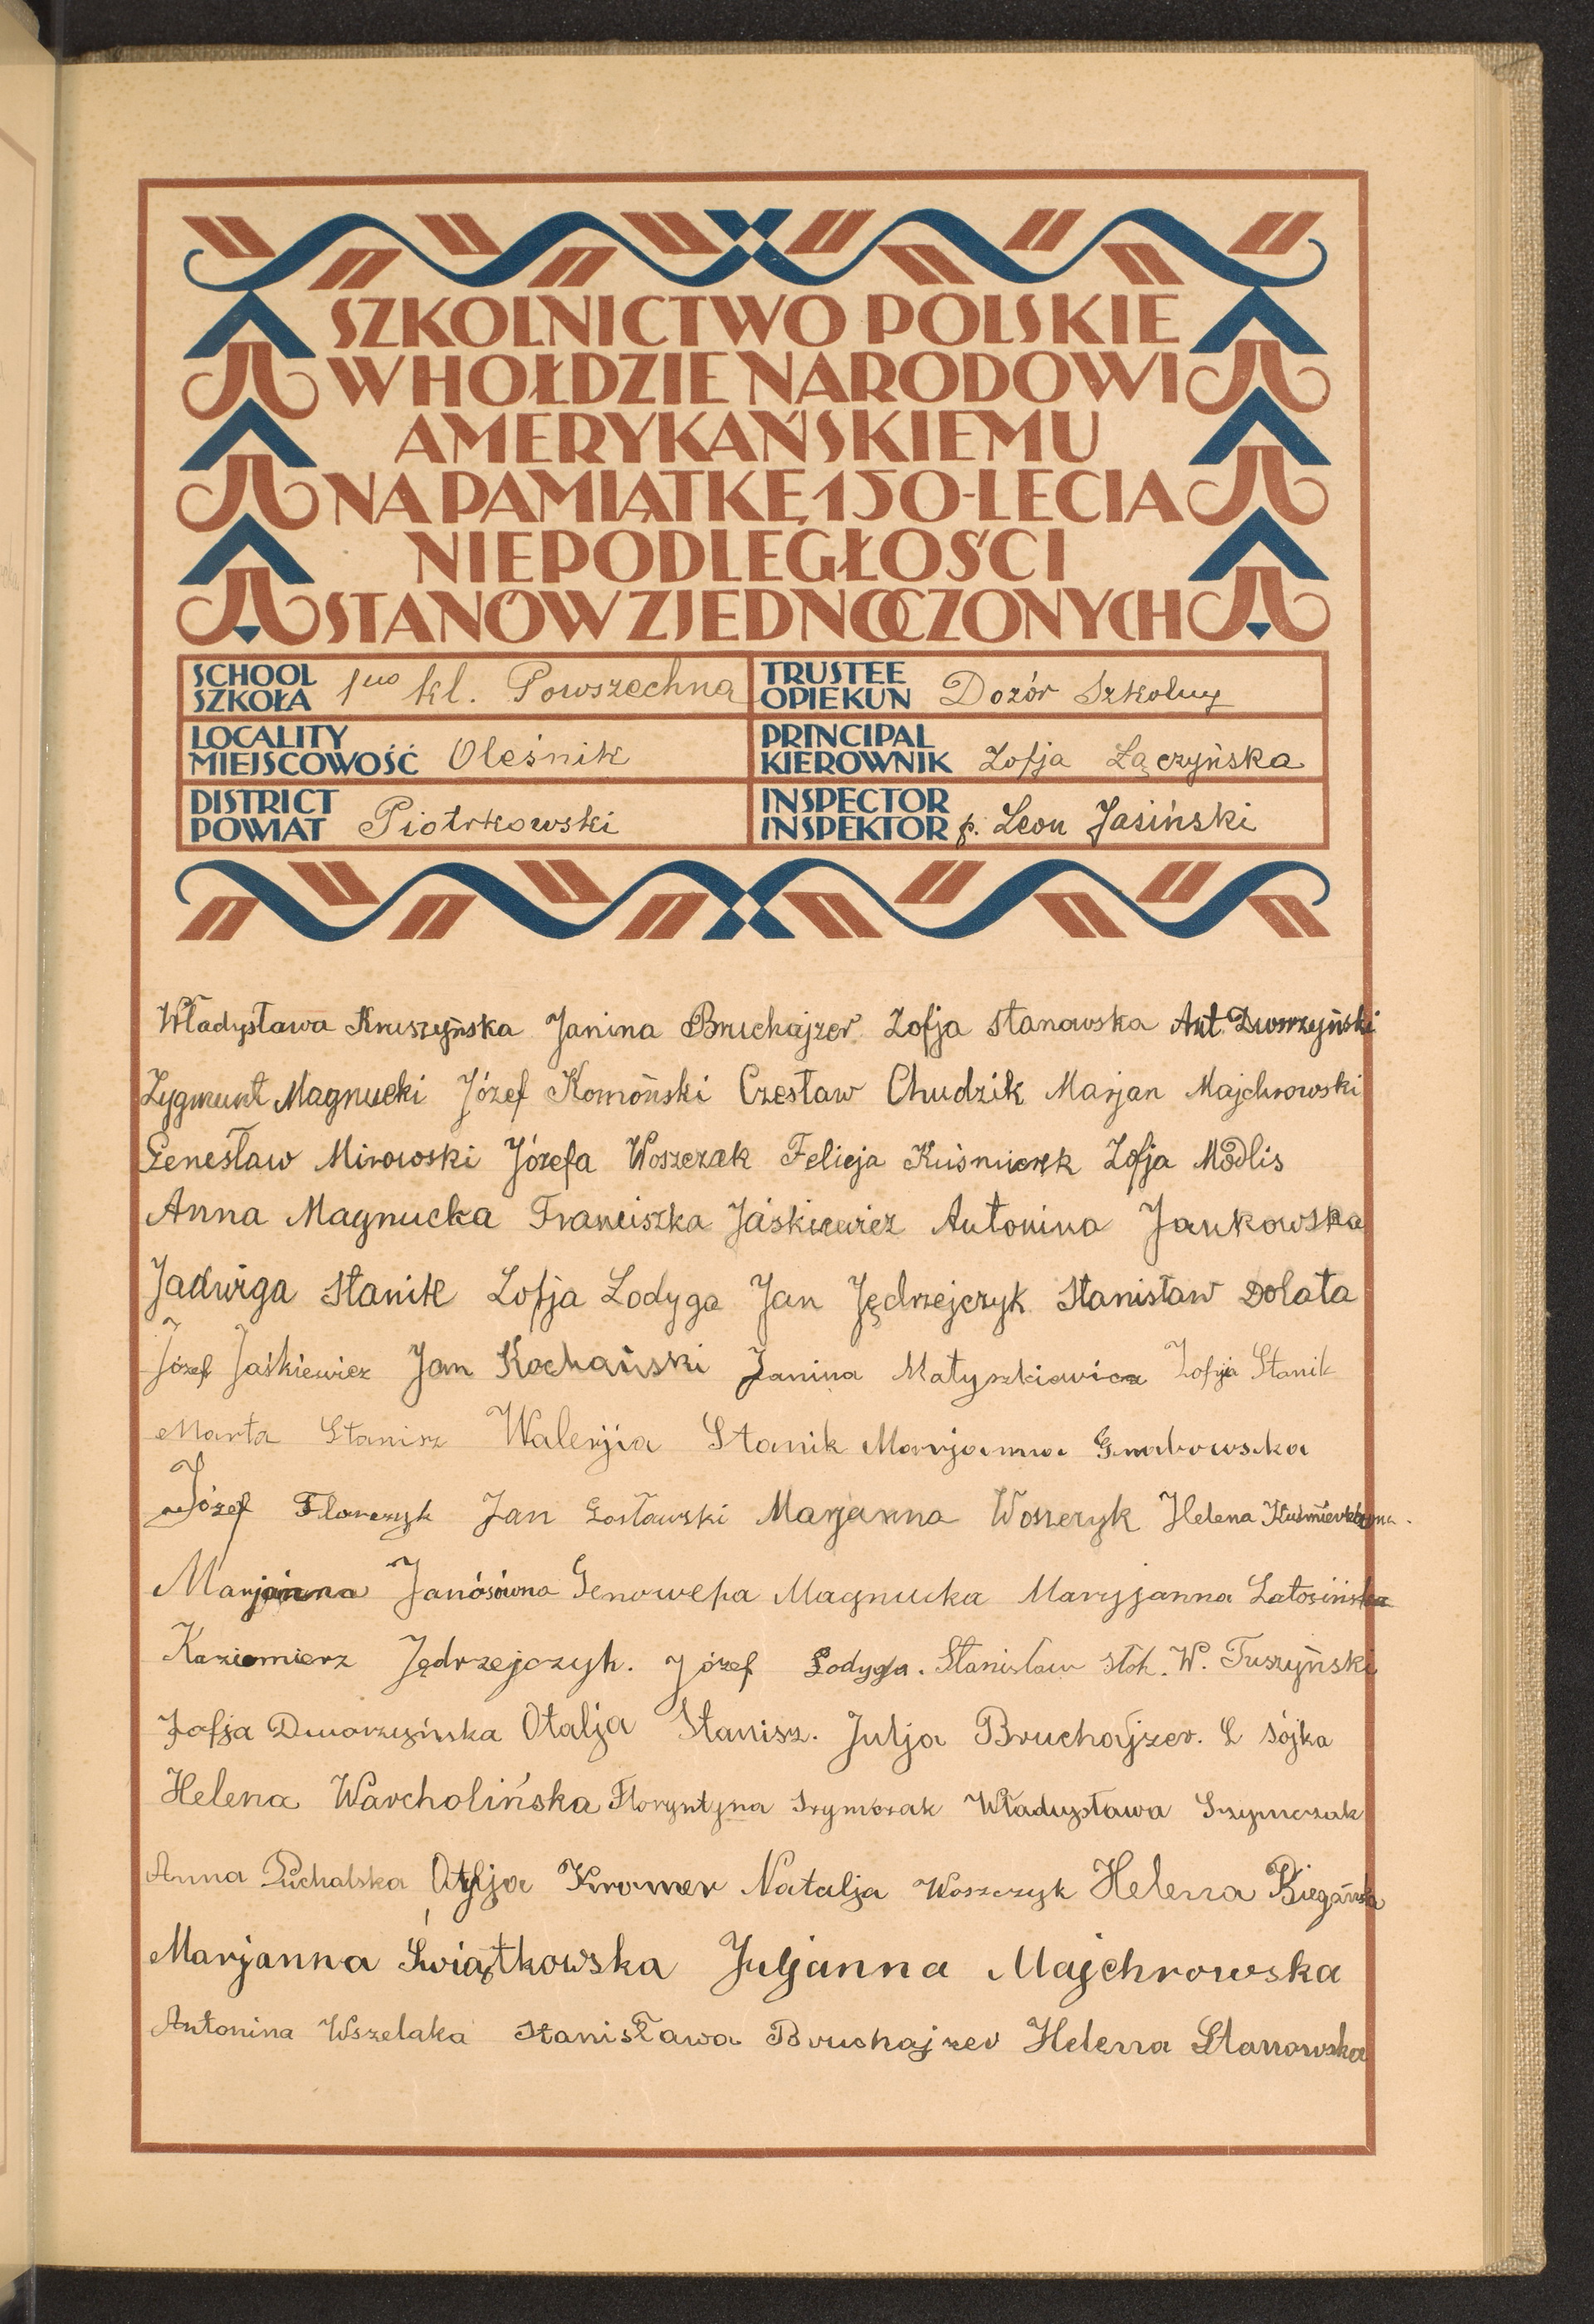 SZKOLNICTWO POLSKIE
W HOŁDZIE NARODOWI
AMERYKAŃSKIEMU
NA PAMIĄTKĘ 150-LECIA
NIEPODLEGŁOŚCI
STANÓW ZJEDNOCZONYCH
SCHOOL
SZKOŁA 1no kl. Powszechna
TRUSTEE
OPIEKUN Dozór Szkolny
LOCALITY
MIEJSCOWOŚĆ Oleśnik
PRINCIPAL
KIEROWNIK Zofja Łączyńska
DISTRICT
POWIAT Piotrkowski
INSPECTOR
INSPEKTOR p. Leon Jasiński
Władysława Kruszyńska Janina Bruchajzer Zofja Stanowska Ant. Dworzyński
Zygmunt Magnucki Józef Komoński Czesław Chudzik Marjan Majchrowski
Mirowski Józefa Woszczak Felicja Kuśmierek Zofja Modlis
Anna Magnucka Franciszka Jaśkiewicz Antonina Jankowska
Jadwiga Stanik Zofja Łodyga Jan Jędrzejczyk Stanisław Dolata
Józef Jaśkiewicz Jan Kochański Janina Matyszkiewicz Zofja Stanik
Marta Stanisz Walerjia Stanik Marrjanna Grabowska
Józef Florczyk Jan Gosławski Marjanna Woszczyk Helena
Marjanna Janósówna Genowefa Magnucka Maryjanna Latosińska
Kaziemierz Jędrzejczyk. Józef Łodyga. Stanisław Stok. W. Tuszyński
Zofja Dworzyńska Otalja Stanisz. Julja Bruchajzer. L Sójka
Helena Warcholińska Floryntyna Szymczak Władysława Szymczak
Anna Puchalska Otylja Kromer Natalja Woszczyk Helena Biegańska
Marjanna Świątkowska Juljanna Majchrowska
Antonina Wszelaka Stanisława Bruchajzer Helena Stanowska